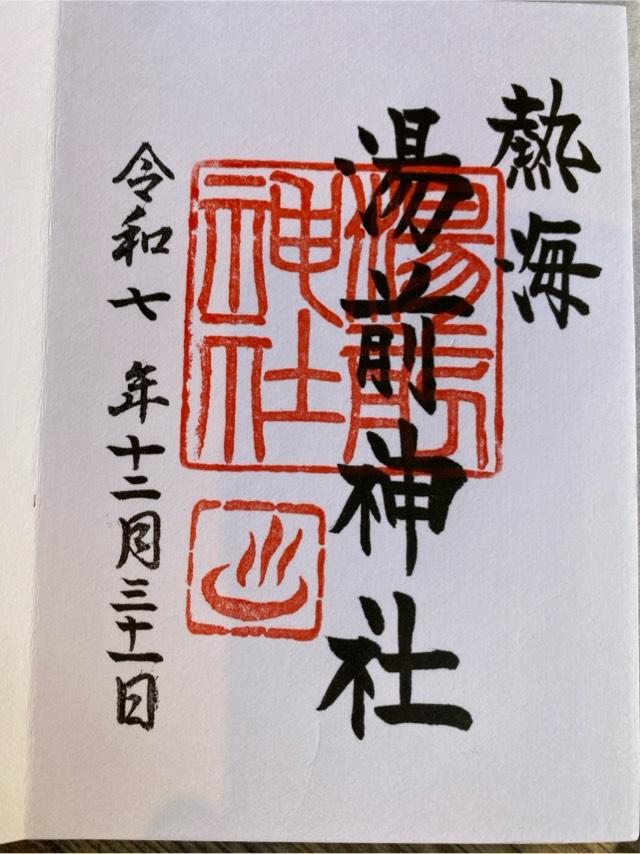 熱海
湯前神社
湯前
神社
令和七年十二月三十一日